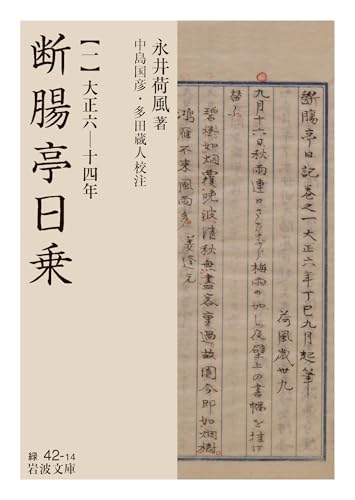 断腸亭日乗
【一】大正六―十四年
永井荷風 著
中島国彦・多田蔵人校注
断膓亭日記巻之一大正六年丁巳九月起筆
荷風歳卅九
九月十六日秋雨連日さながら梅雨の如し夜壁上の書幅を挂け
替ふ
碧樹如烟覆晩波清秋無盡客重過故園今即如烟樹
鴻雁不来風雨多 姜逢元
緑 42-14
岩波文庫